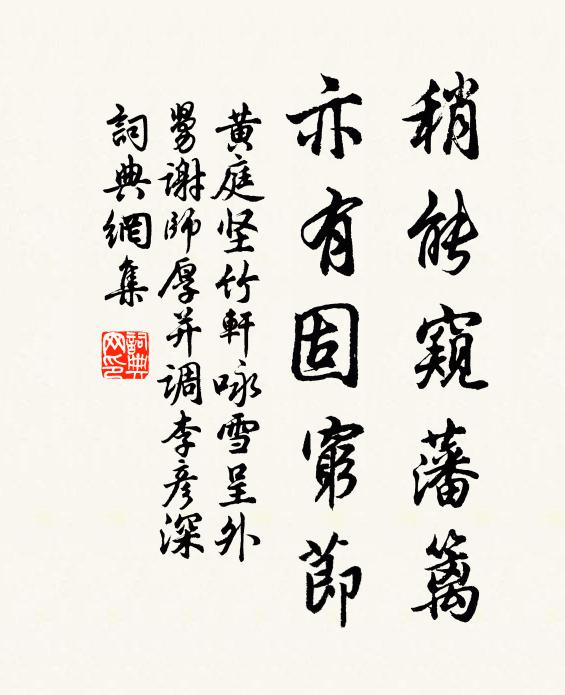 稍能窺藩籬
亦有固窮節
黃庭坚竹軒咏雪呈外
舅谢師厚并調李彦深
詞典網集
詞典網印